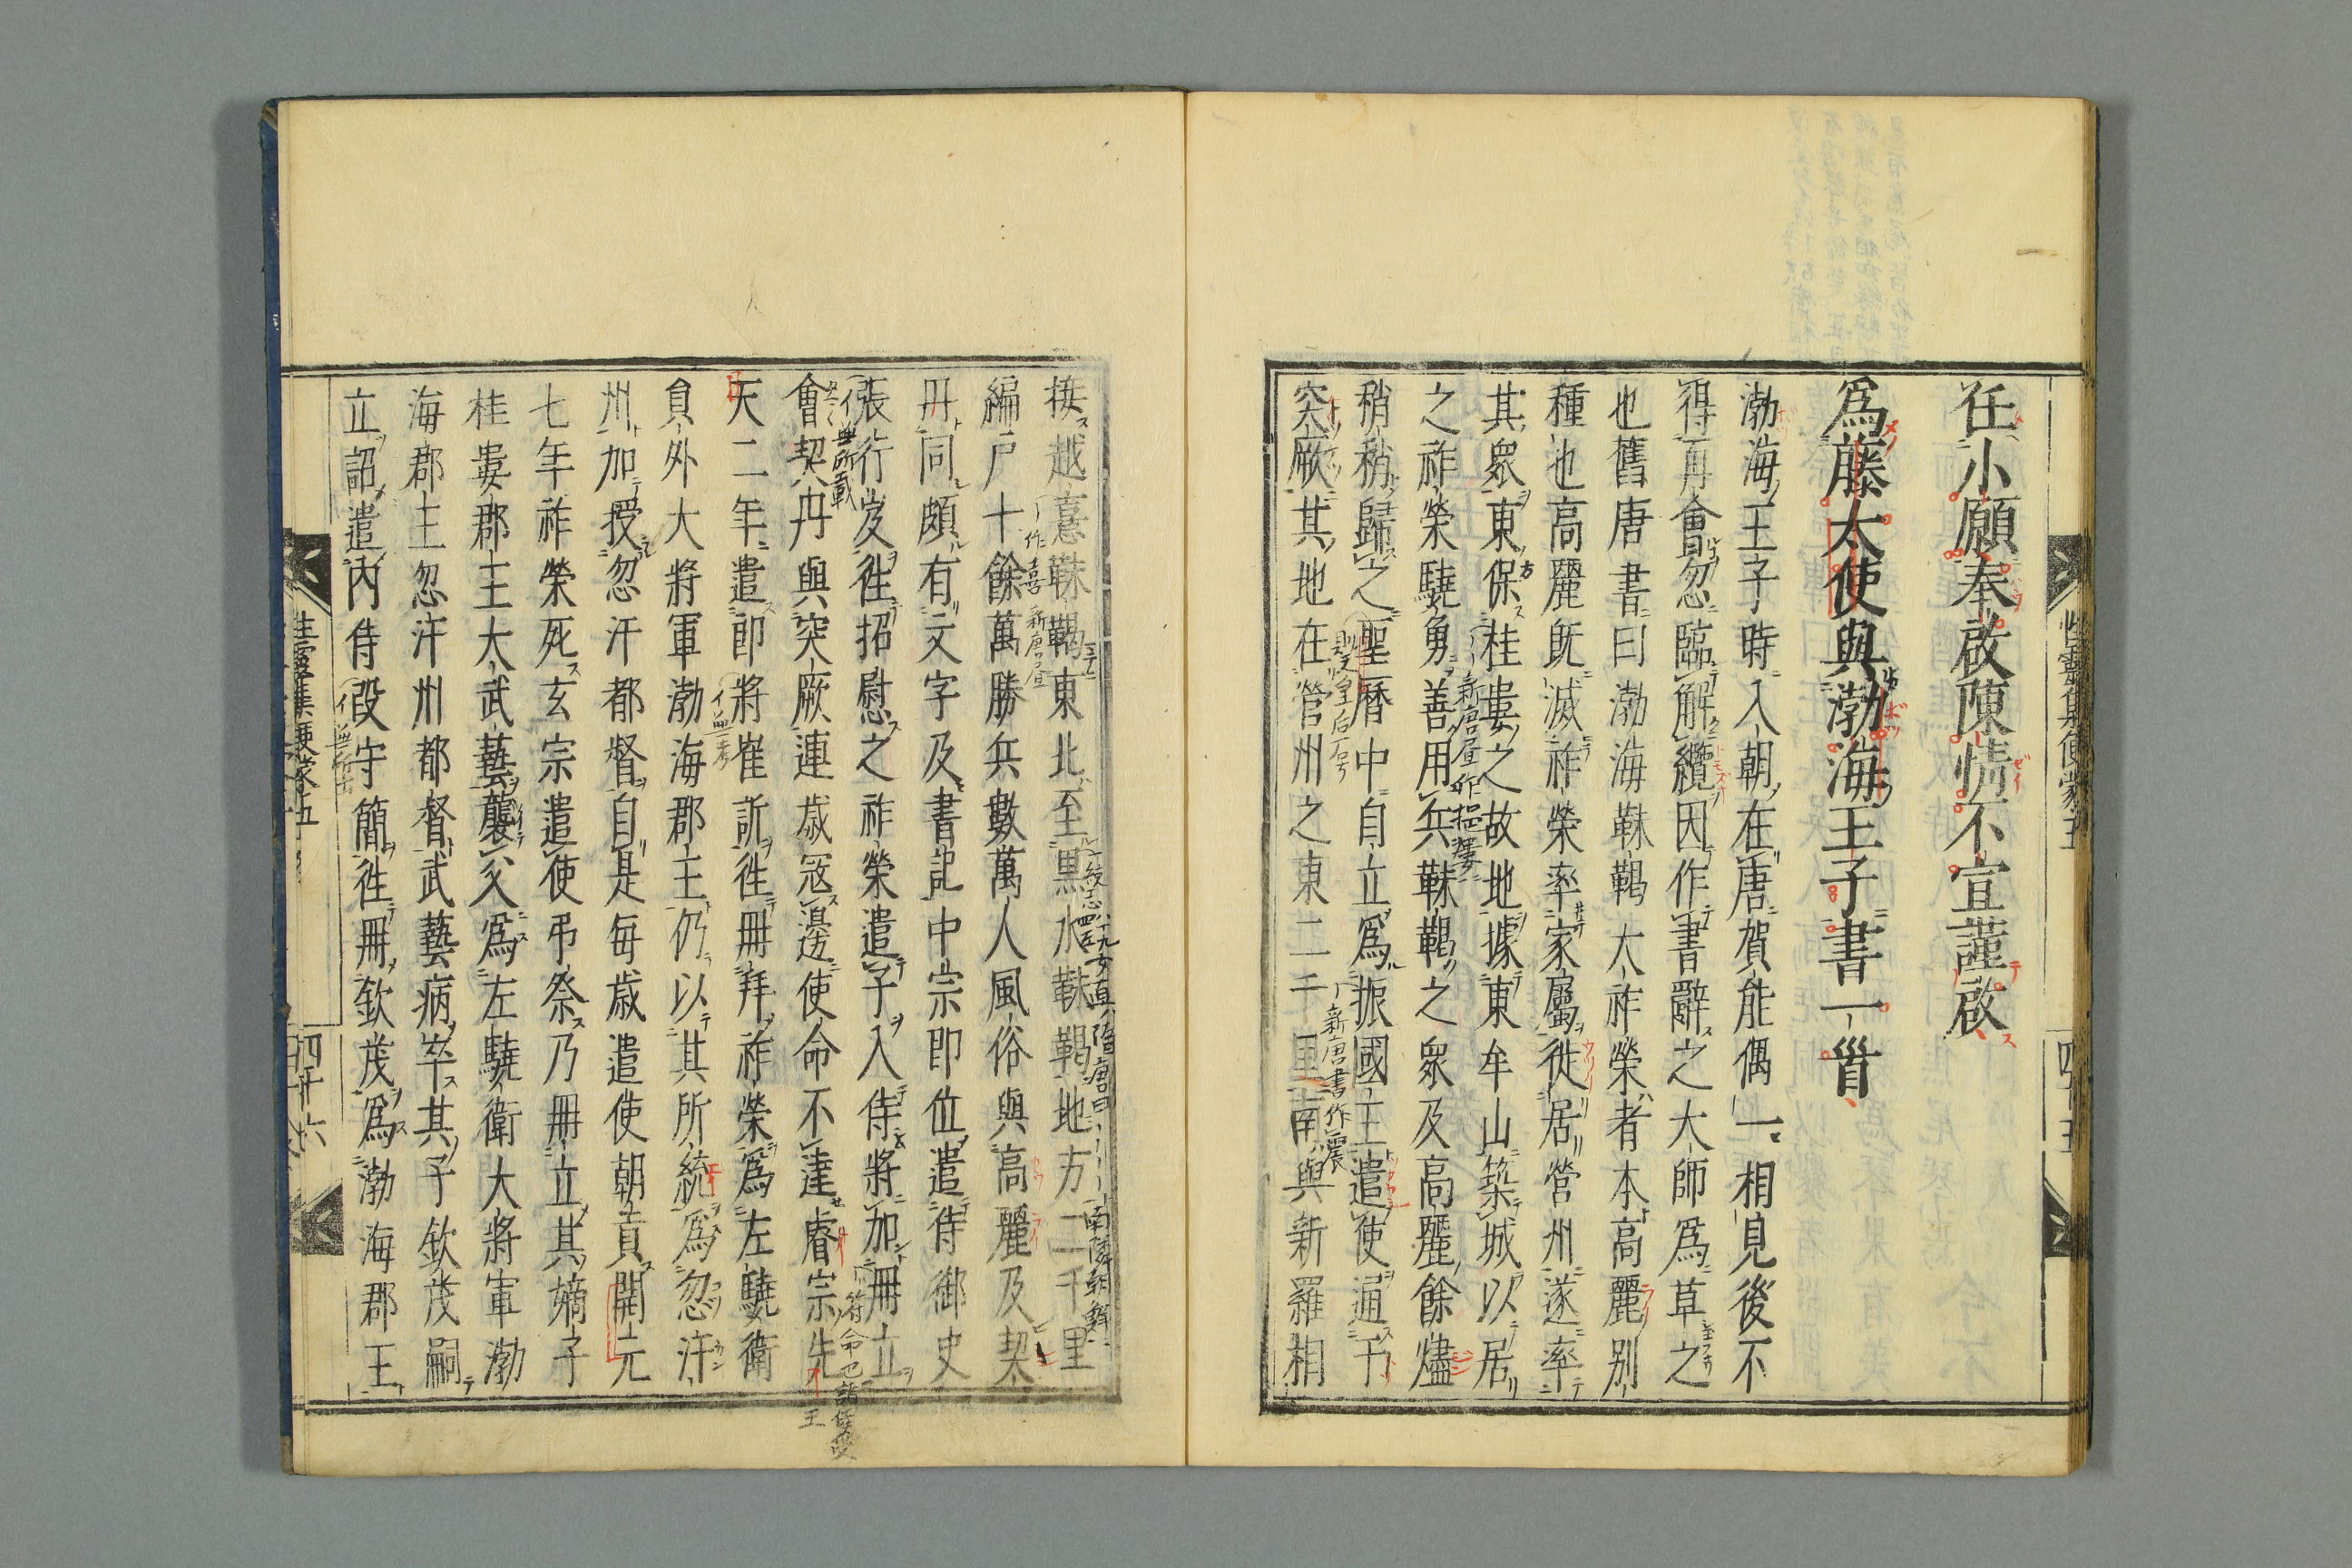 任小願奉啟陳情不宣謹啟
爲藤太使與渤海王子書一首
渤海王子時入朝在唐賀能偶一相見後不
得再會忽臨解纜因作書辭之大師爲草之
也舊唐書曰渤海靺鞨大祚榮者本高麗別
種也高麗既滅祚榮率家屬徙居營州遂率
其眾東保桂婁之故地據東牟山築城以居
之祚榮驍勇善用兵靺鞨之眾及高麗餘燼
稍稍歸之聖曆中自立爲振國王遣使通于
突厥其地在營州之東二千里南與新羅相
新唐書作挹婁
則天皇后后号
新唐書作震
性靈集便蒙五
按越憙靺鞨東北至黒水靺鞨地方二千里
編戶十餘萬勝兵數萬人風俗與高麗及契
丹同頗有文字及書記中宗即位遣侍御史
張行岌徃招慰之祚榮遣子入侍將加冊立
會契丹與突厥連歲寇邊使命不達睿宗先
天二年遣郎將崔訢徃冊拜祚榮爲左驍衛
員外大將軍渤海郡王仍以其所統爲忽汗
州加授忽汗都督自是每歲遣使朝貢開元
七年祚榮死玄宗遣使弔祭乃冊立其嫡子
桂婁郡王大武藝襲父爲左驍衛大將軍渤
海郡王忽汗州都督武藝病卒其子欽茂嗣
立詔遣內侍段守簡徃冊欽茂爲渤海郡王
作喜 新唐書
イ無所載
王
性靈集便蒙五
四十六